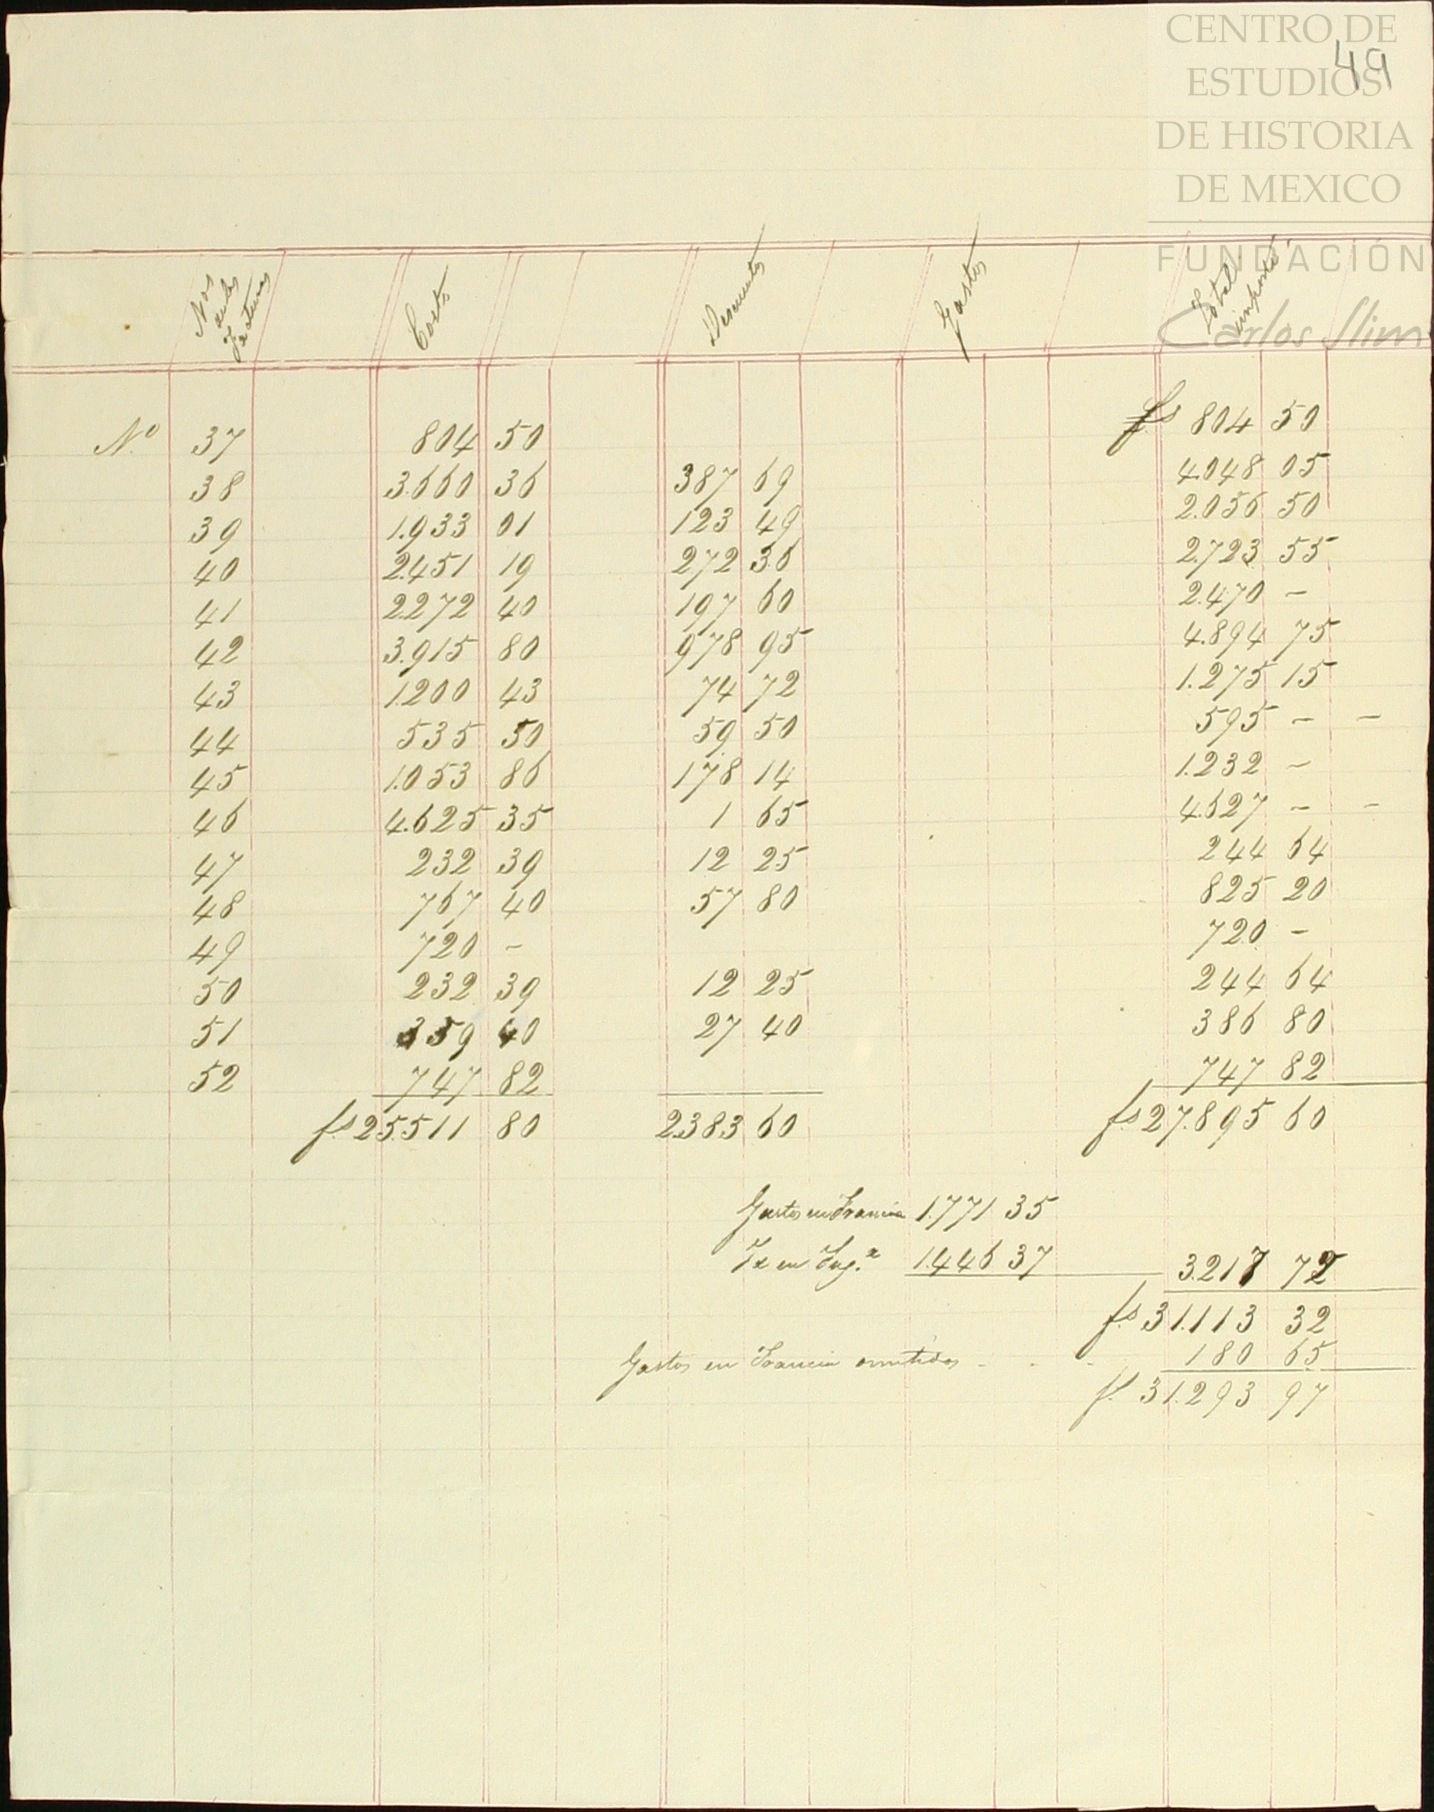 CENTRO DE
ESTUDIOS
DE HISTORIA
DE MEXICO
FUNDACIÓN
Carlos Slim
49
Nos de las Facturas Costo Descuentos Gastos Total importe
No. 37 804 50 fs 804 50
38 3.660 36 387 69 4.048 05
39 1.933 01 123 49 2.056 50
40 2.451 19 272 36 2.723 55
41 2.272 40 197 60 2.470 –
42 3.915 80 978 95 4.894 75
43 1.200 43 74 72 1.275 15
44 535 50 59 50 595 – –
45 1.053 86 178 14 1.232 –
46 4.625 35 1 65 4.627 – –
47 232 39 12 25 244 64
48 767 40 57 80 825 20
49 720 – 720 –
50 232 39 12 25 244 64
51 359 40 27 40 386 80
52 747 82 747 82
fs 25.511 80 2.383 60 fs 27.895 60
Gastos en Francia 1.771 35
en Ing.a 1.446 37 3.217 72
fs 31.113 32
Gastos en Francia omitidos - - - 180 65
f. 31.293 97